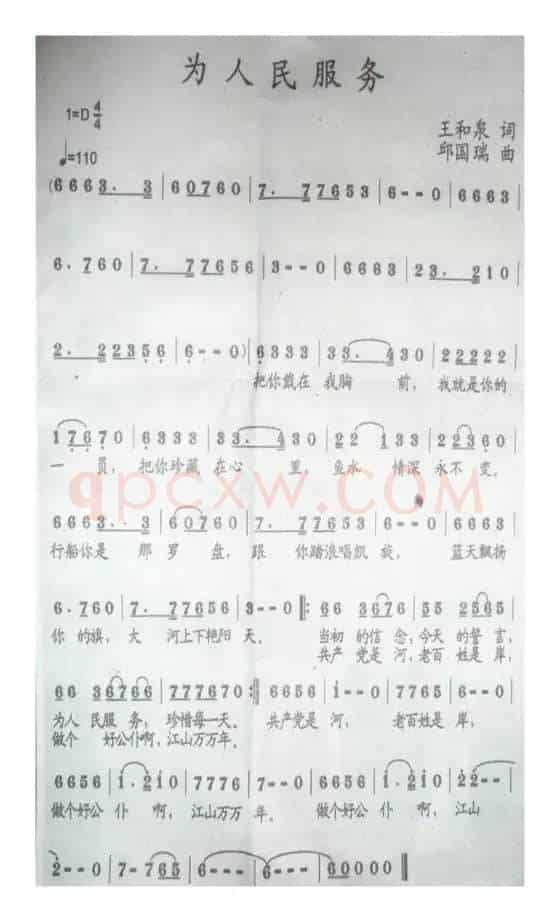 为人民服务
1=D 4/4
王和泉 词
♩=110
邱国瑞 曲
(6 6 6 3. 3 | 6 0 7 6 0 | 7. 7 7 7 6 5 3 | 6 - - 0 | 6 6 6 3 |
6. 7 6 0 | 7. 7 7 7 6 5 6 | 3 - - 0 | 6 6 6 3 | 2 3. 2 1 0 |
2. 2 2 3 5 6 | 6 - - 0 ) | 6 3 3 3 | 3 3. 4 3 0 | 2 2 2 2 2 |
把你戴在 我胸 前, 我就是你的
1 7 6 7 0 | 6 3 3 3 | 3 3. 4 3 0 | 2 2 1 3 3 | 2 2 3 6 0 |
一 员, 把你珍藏 在心 里, 鱼水 情深 永不 变。
qpcxw.COM
6 6 6 3. 3 | 6 0 7 6 0 | 7. 7 7 7 6 5 6 | 6 - - 0 | 6 6 6 3 |
行船你是 那 罗 盘, 跟 你踏浪唱凯 旋, 蓝天飘扬
6. 7 6 0 | 7. 7 7 7 6 5 6 | 3 - - 0 ‖: 6 6 3 6 7 6 | 5 5 2 5 6 5 |
你 的旗, 大 河上下艳阳 天。 当初 的信念,今天 的誓言,
共产 党是 河,老百 姓是 岸,
6 6 3 6 7 6 6 | 7 7 7 6 7 0 :‖ 6 6 5 6 | i - - 0 | 7 7 6 5 | 6 - - 0 |
为人 民服 务, 珍惜每一天。 共产党是 河, 老百姓是 岸,
做个 好公仆啊,江山万万年。
6 6 5 6 | i. 2 i 0 | 7 7 7 6 | 7 - - 0 | 6 6 5 6 | i. 2 i 0 | 2 2 - - |
做个好公 仆 啊, 江山万万 年。 做个好公 仆 啊, 江山
2 - - 0 | 7 - 7 6 5 | 6 - - - | 6 - - - | 6 0 0 0 0 ‖